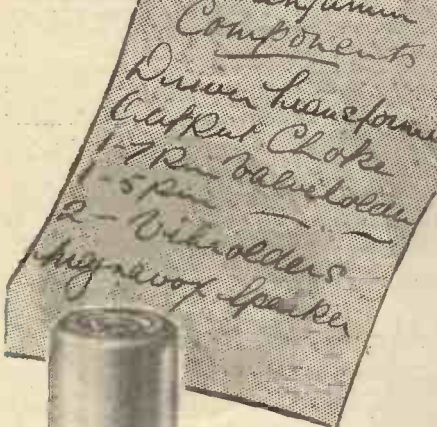 Components
Driver Transformer
Output Choke
1-7 Pin Valveholder
1-5 pin — —
2 - Vibrolders
Magnavox Speaker